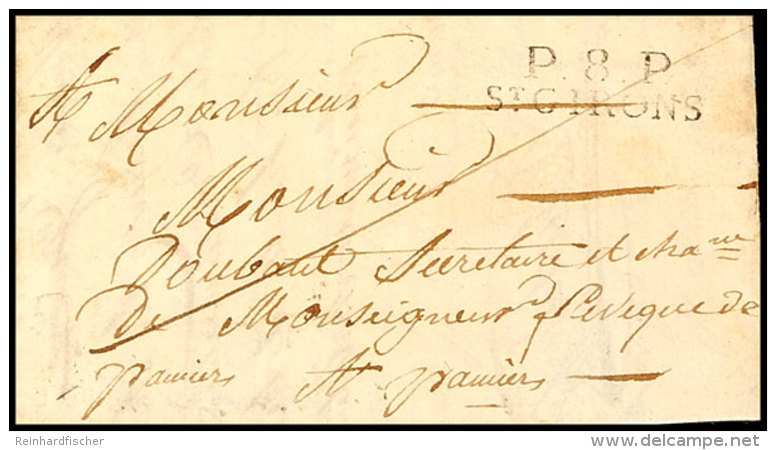 P. 8. P
ST GIRONS
A Monsieur
Monsieur
Doubaut Secretaire et cha ne
De Monseigneur Leveque de
pamiers A pamiers
Reinhardfischer
www.delcampe.net